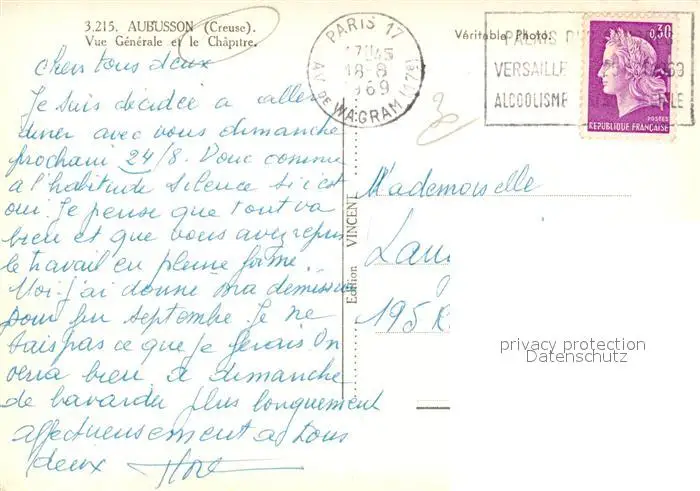 3.215. AUBUSSON (Creuse).
Vue Générale et le Châpitre.
Véritable Photo.
PARIS 17
17H45
18-8
1969
AV. DE WAGRAM (17e)
PALAIS D
VERSAILLE
69
ALCOOLISME
LE
0,30
POSTES
REPUBLIQUE FRANÇAISE
chers tous deux
Je suis décidée à aller
diner avec vous dimanche
prochain 24/8. Donc comme
à l'habitude silence si c'est
oui. Je pense que tout va
bien et que vous avez repris
le travail en pleine forme.
Moi j'ai donné ma démission
pour fin septembre. Je ne
sais pas ce que je ferais On
verra bien à dimanche
de bavarder plus longuement
affectueusement à tous
deux
Edition VINCENT
Mademoiselle
195 R
privacy protection
Datenschutz